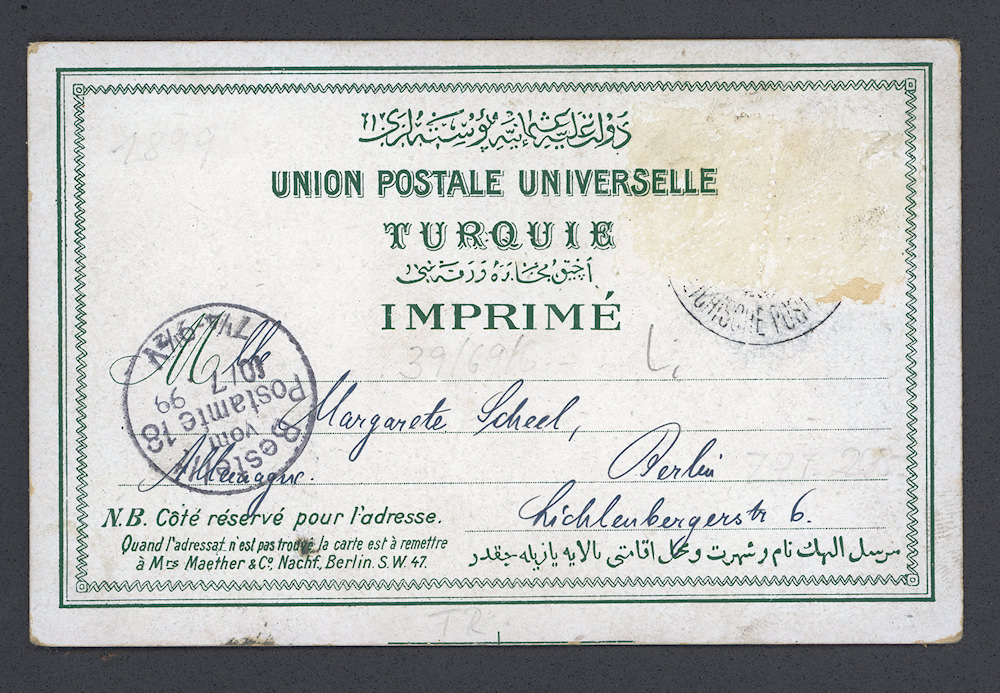 دولت علیه عثمانیه پوسته لری
1899
UNION POSTALE UNIVERSELLE
TURQUIE
آچیق مخابره ورقه سی
IMPRIMÉ
ICHISCHE POST
7½-8½N
10/7
99
Bestellt
vom
Postamte 18
39/69/6
Li
Mlle
Margarete Scheel,
Allemagne.
Berlin
Lichtenbergerstr 6.
N.B. Côté réservé pour l'adresse.
Quand l'adressat n'est pas trouvé la carte est à remettre
à Mrs Maether & Co. Nachf. Berlin. S.W. 47.
مرسل الیهك نام و شهرت و محل اقامتی بالایه یازیله جقدر
TR